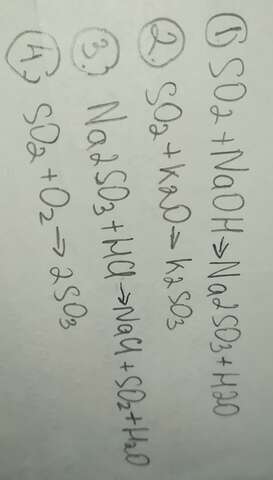 1) SO2 + NaOH → Na2SO3 + H2O
2. SO2 + K2O → K2SO3
3. Na2SO3 + HCl → NaCl + SO2 + H2O
4. SO2 + O2 → 2SO3